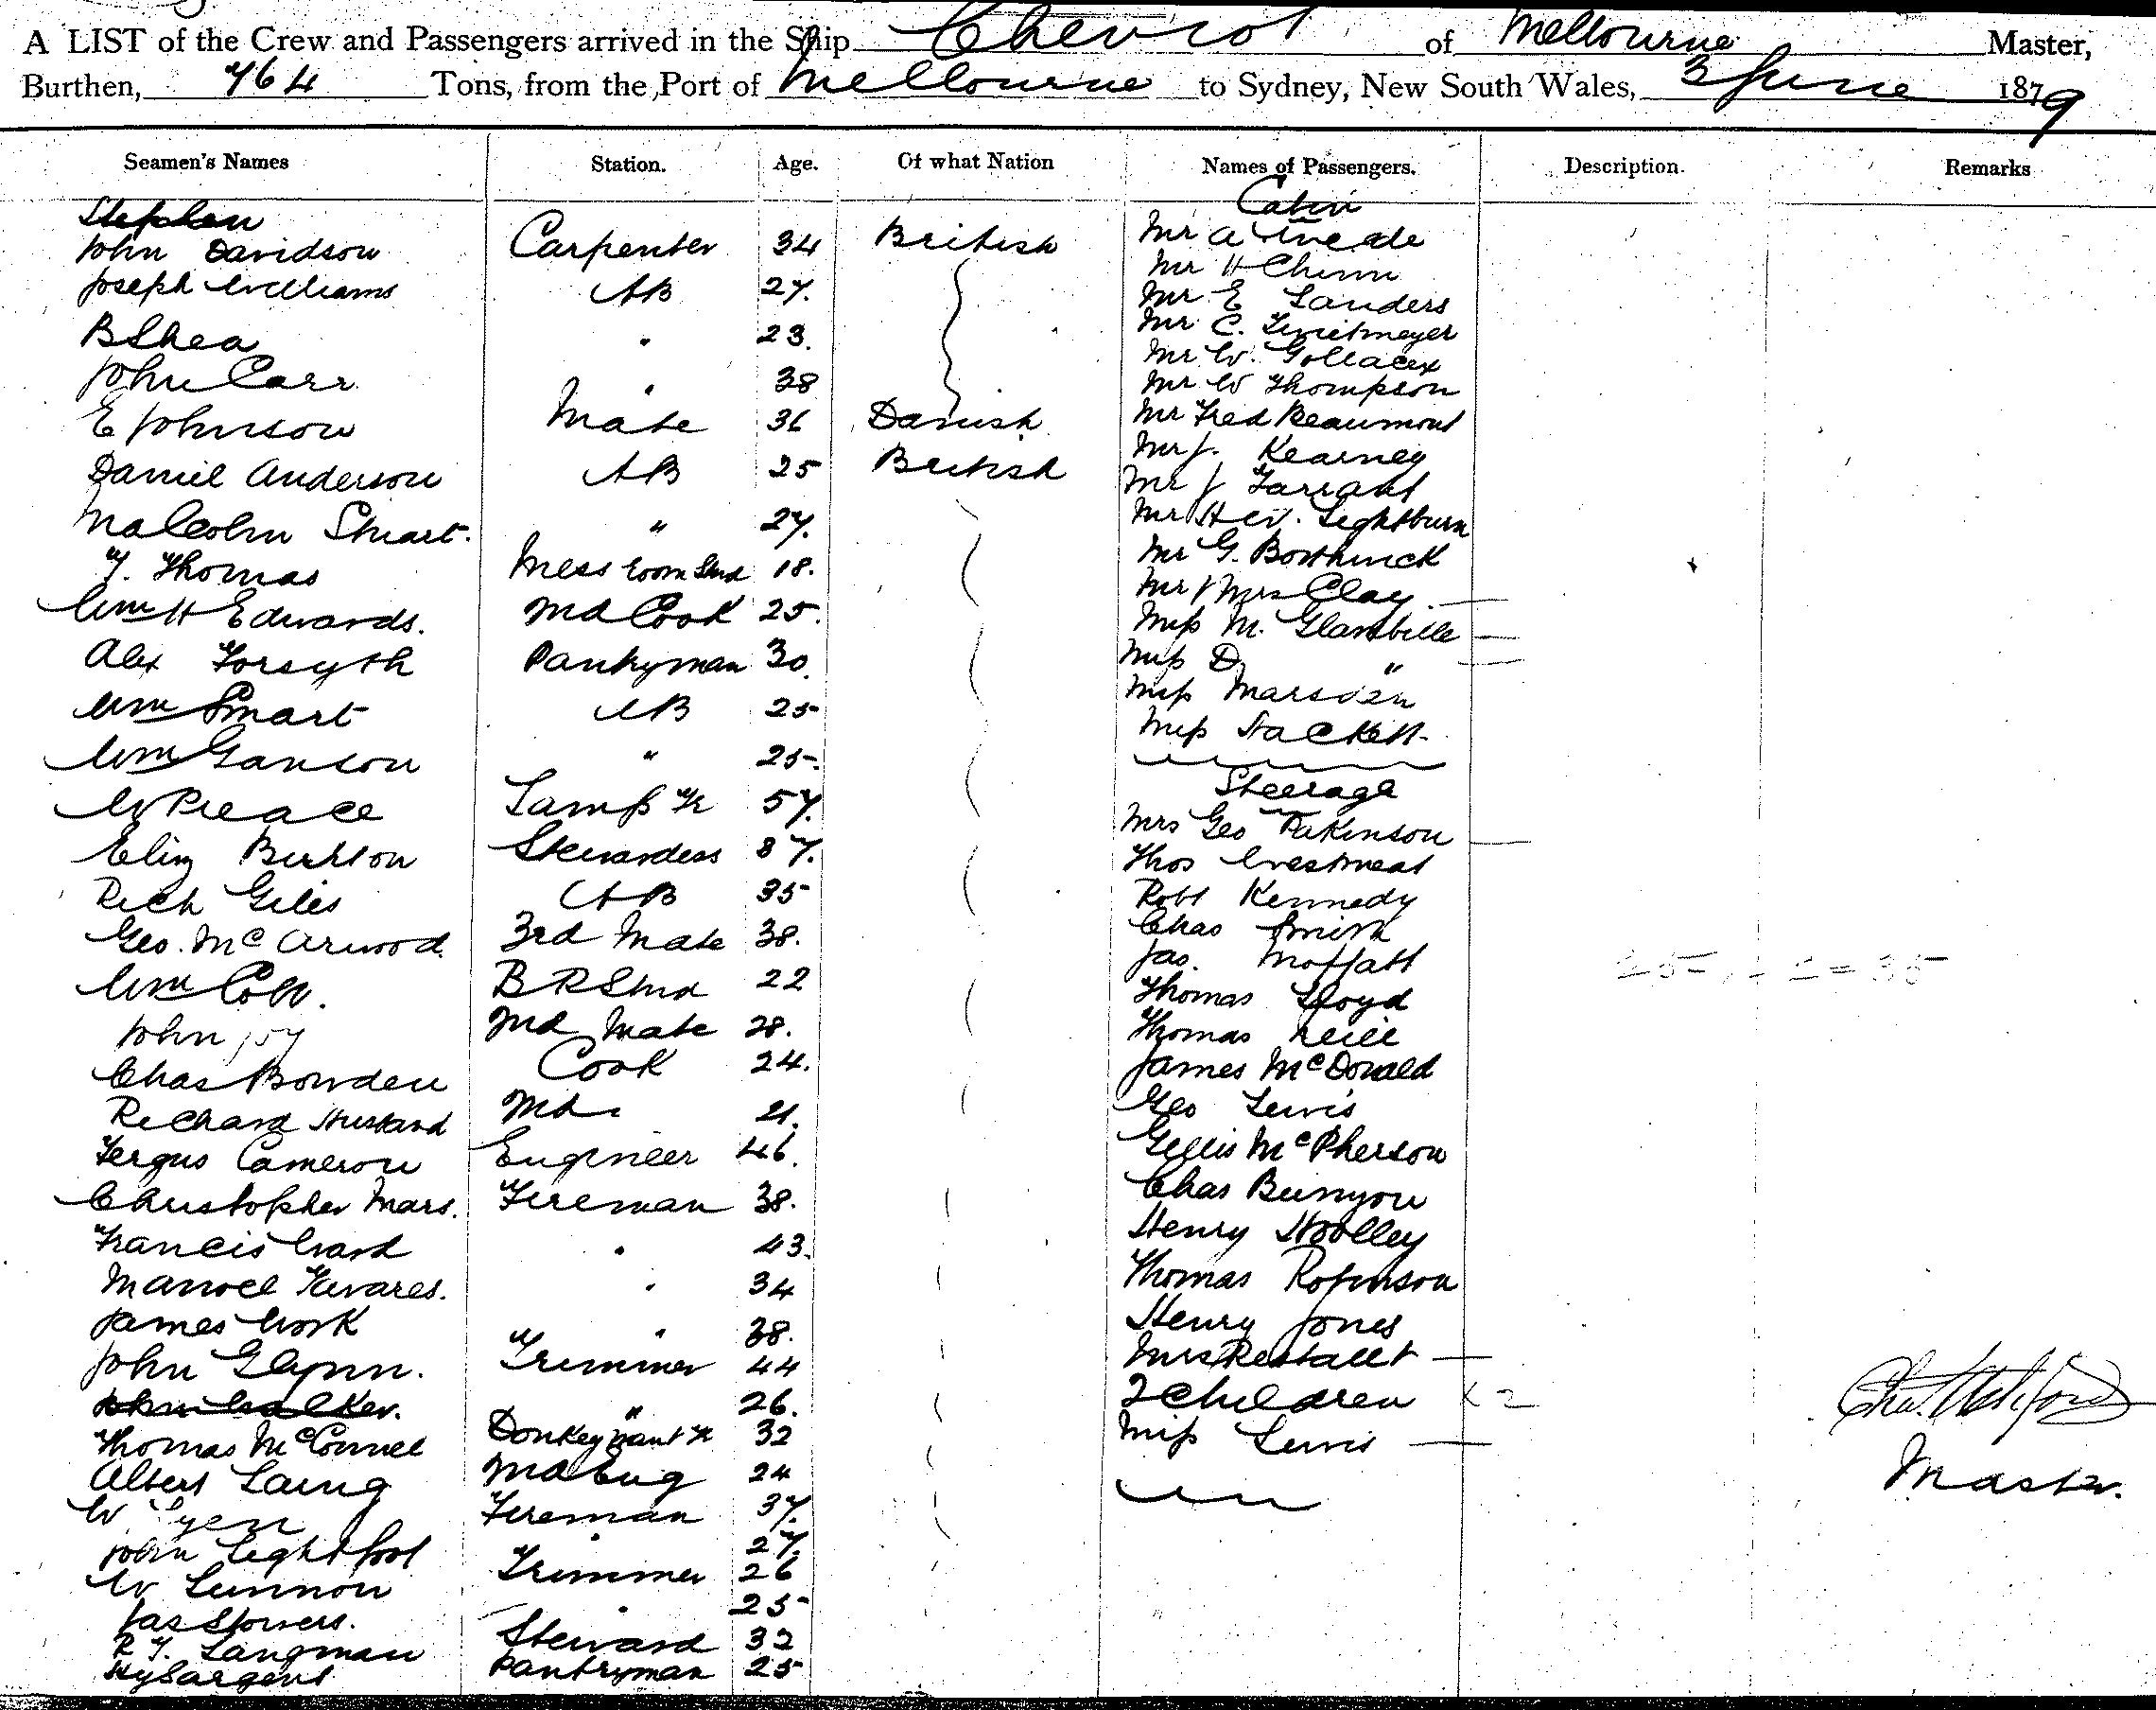 A LIST of the Crew and Passengers arrived in the Ship Cheviot of Melbourne Master,
Burthen, 764 Tons, from the Port of Melbourne to Sydney, New South Wales, 3 June 1879
Seamen's Names Station. Age. Of what Nation Names of Passengers. Description. Remarks
Cabin
Stephen
John Davidson Carpenter 34 British Mr A
Joseph Williams AB 27. Mr H Chinn
Mr E Landers
B Shea " 23. Mr C.
Mr W.
John Carr " 38 Mr W Thompson
E Johnson Mate 36 Danish Mr Fred Beaumont
Mr J. Kearney
Daniel Anderson AB 25 British Mr J Farrant
Malcolm Stuart. " 27. Mr H W. Lightburn
T. Thomas Mess room Stwd 18. Mr G. Borthwick
Wm H Edwards. 2nd Cook 25. Mr & Mrs Clay
Miss M. Glanville
Alex Forsyth Pantryman 30. Miss D "
Wm Smart AB 25 Miss Marsden
Miss Hackett
Wm Ganson " 25
Steerage
W Peace Lamp Tr 57. Mrs Geo Pakinson
Eliz Burton Stewardess 37. Thos
Rich Giles AB 35 Robt Kennedy
Geo. Mc Arwood 3rd Mate 38. Chas Smith
Jas. Moffatt
Wm B R Stwd 22 Thomas Lloyd
John Joy 2nd Mate 28. Thomas Neill
Chas Bowden Cook 24. James McDonald
Richard Husband 2nd " 21. Geo Lewis
Fergus Cameron Engineer 46. Gillis McPherson
Christopher Mars. Fireman 38. Chas Bunyon
Francis Ward " 43. Henry Woolley
Manoel Tavares. " 34 Thomas Robinson
James Work " 38. Henry Jones
John Glynn. Trimmer 44 Mrs Restallet
John Walker. " 26. 2 Children
Thomas McConnel Donkeymant 32 Miss Lewis
Albert Laing 2nd Eng 24 Master.
W Fireman 37.
John Lightfoot " 27.
W Lennon Trimmer 26
Jas Stowers. " 25
R T. Langman Steward 32
Hy Sargent Pantryman 25